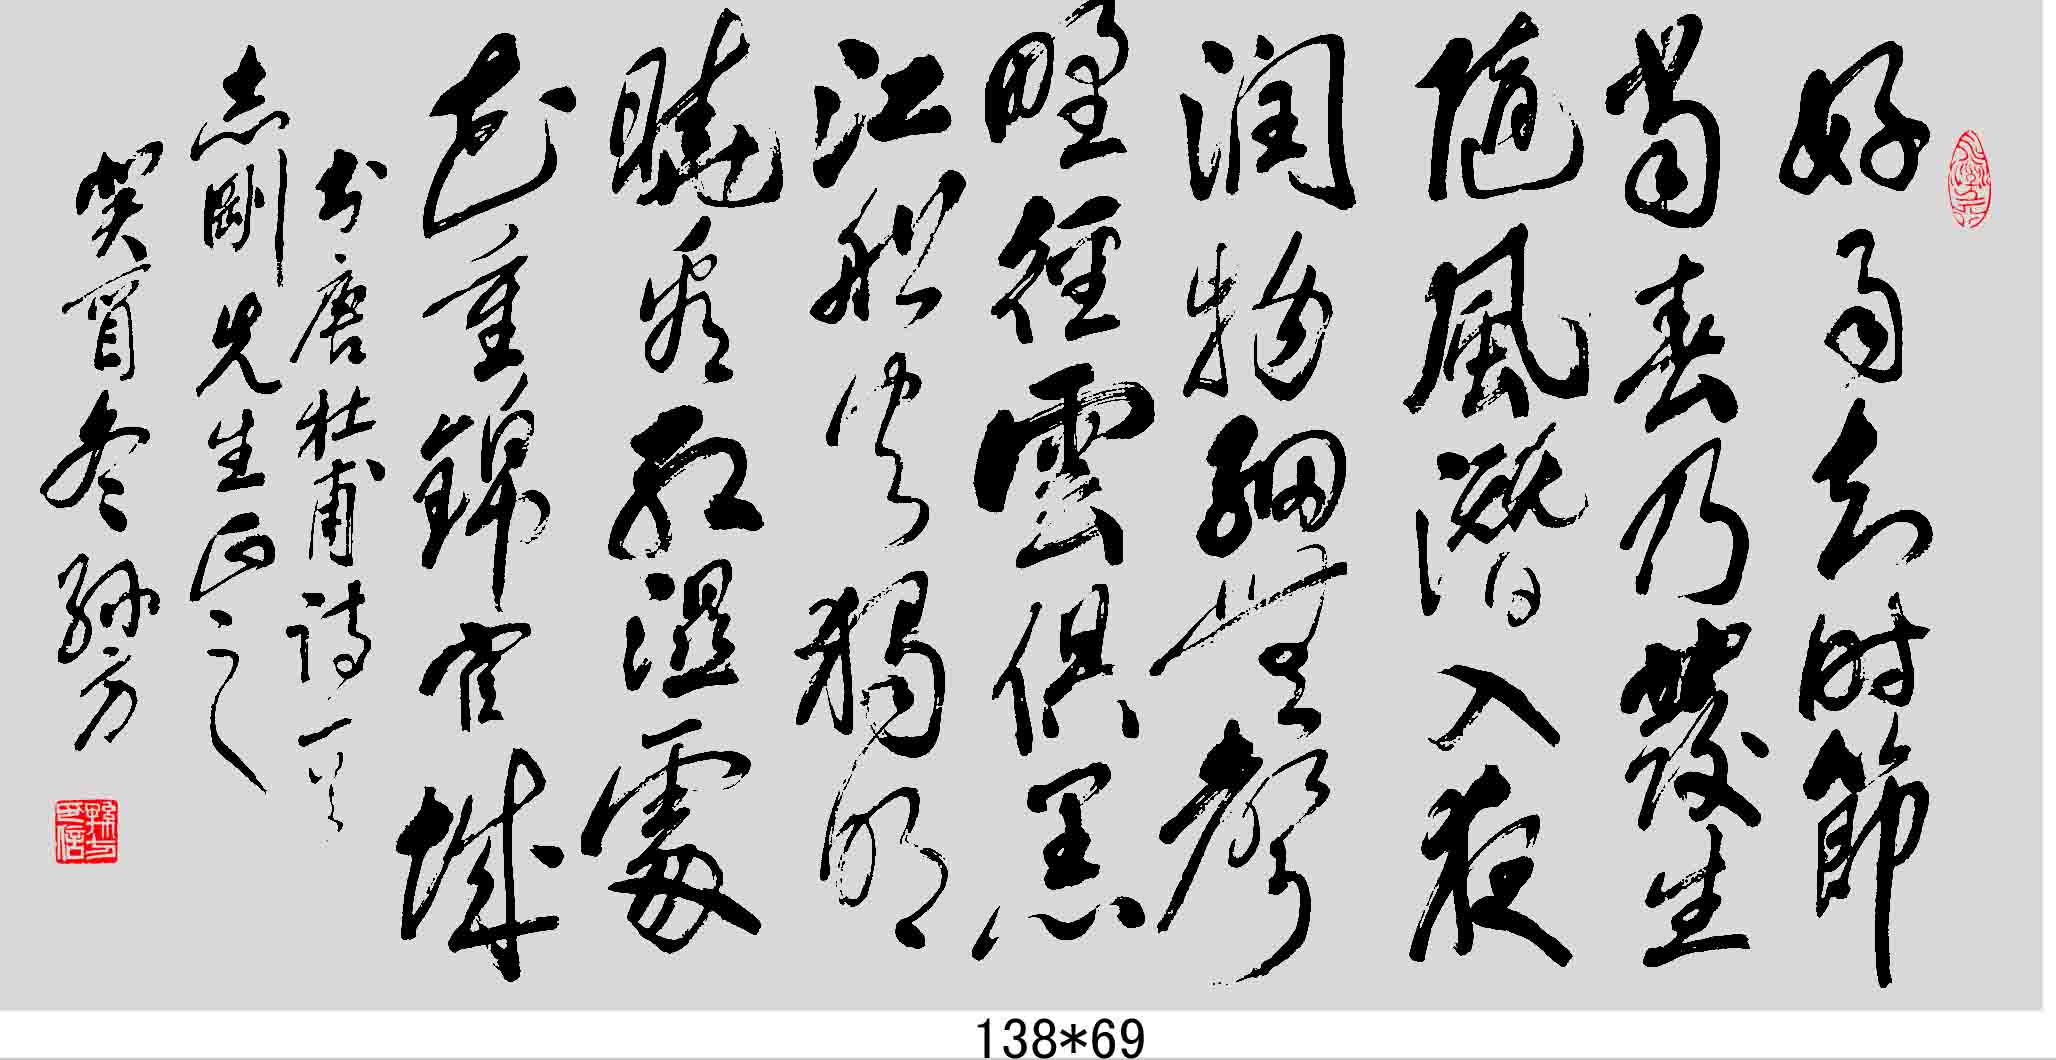 好雨知时節
當春乃發生
随風潛入夜
润物細無聲
野徑雲俱黑
江船火獨明
曉看紅濕處
花重錦官城
书唐杜甫詩一首
志剛先生正之
癸酉冬孫方
孫方印信
138*69